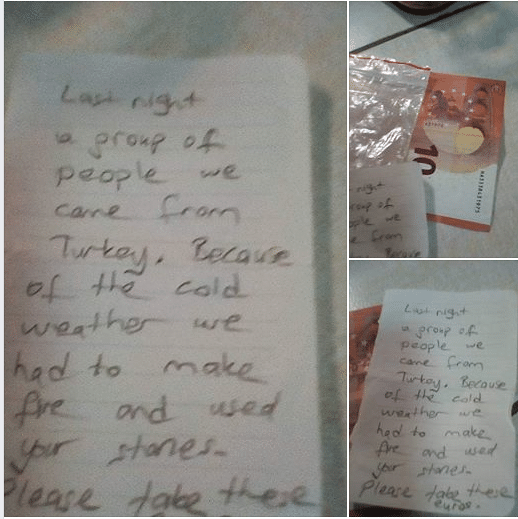 Last night
a group of
people we
came from
Turkey. Because
of the cold
weather we
had to make
fire and used
your stones.
Please take these
10
night
roup of
ple we
e from
Because
Last night
a group of
people we
came from
Turkey. Because
of the cold
weather we
had to make
fire and used
your stones.
Please take these
euros.